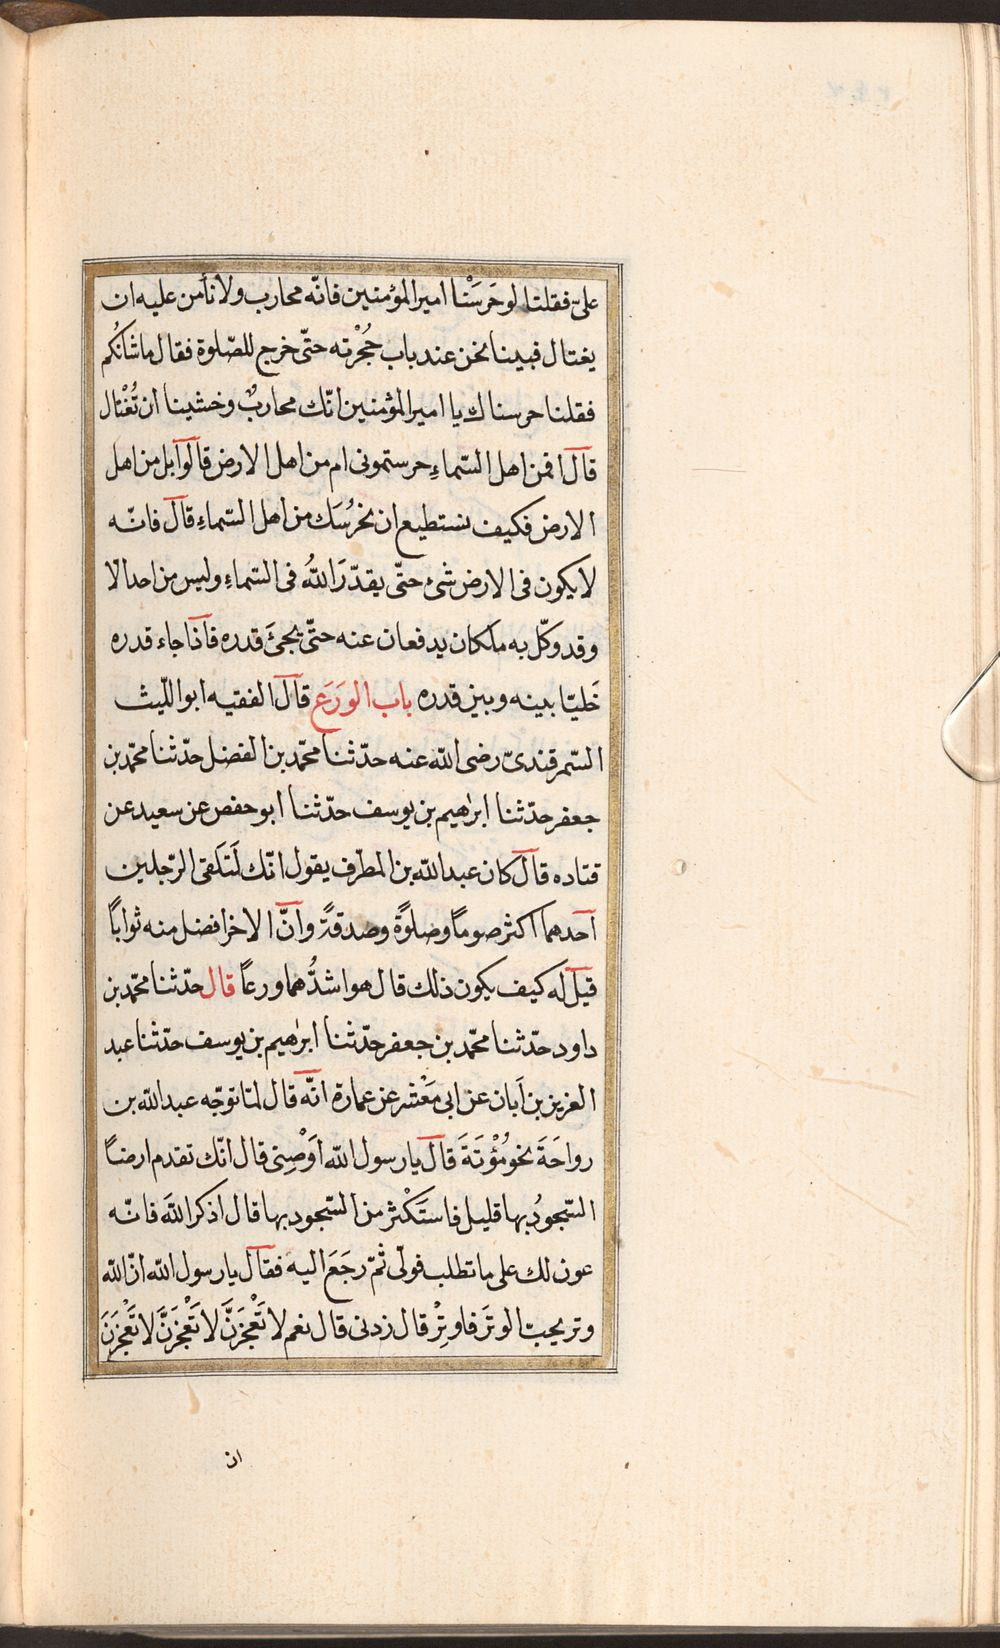 علىّ فقلنا لو حَرَسْنا امير المؤمنين فانّه محارب ولا نأمن عليه ان
يغتال فبينا نحن عند باب حُجْرته حتّى خرج للصّلوة فقال ما شانكُم
فقلنا حرسناك يا امير المؤمنين انّك محاربٌ وخشينا ان تُغْتال
قال افمن اهل السّماءِ حرستمونى ام من اهل الارض قالوا بل من اهل
الارض فكيف نستطيع ان نحرُسَك من اهل السّماءِ قال فانّه
لا يكون فى الارض شئ حتّى يقدّرَ اللّهُ فى السّماءِ وليس من احد الّا
وقد وكّل به ملكان يدفعان عنه حتّى يجئَ قدره فاذا جاء قدره
خَليّا بينه وبين قدره باب الوَرَع قال الفقيه ابو اللّيث
السّمرقندىّ رضى اللّه عنه حدّثنا محمّد بن الفضل حدّثنا محمّد بن
جعفر حدّثنا ابرٰهيم بن يوسف حدّثنا ابو حفص عن سعيد عن
قتاده قال كان عبد اللّه بن المطرّف يقول انّك لَتَلقى الرّجلين
احدهما اكثر صوماً وصلوةً وصدقةً وانّ الاخر افضل منه ثواباً
قيل له كيف يكون ذلك قال هو اشدُّهما ورعاً قال حدّثنا محمّد بن
داود حدّثنا محمّد بن جعفر حدّثنا ابرٰهيم بن يوسف حدّثنا عبد
العزيز بن اَبان عن ابى مَعْشر عن عمارة انّه قال لمّا توجّه عبد اللّه بن
رواحَةَ نحو مُؤْتَةَ قال يا رسول اللّه اَوْصِنى قال انّك تقدم ارضاً
السّجودُ بها قليل فاستَكْثر من السّجود بها قال اذكر اللّهَ فانّه
عون لك على ما تطلب فولّى ثمّ رجَعَ اليه فقال يا رسول اللّه انّ اللّه
وتر يحبّ الوتَر فاوتِرْ قال زدنى قال نعم لا تَعْجزَنَّ لا تَعْجزَنَّ لا تَعْجزَنَ
ان